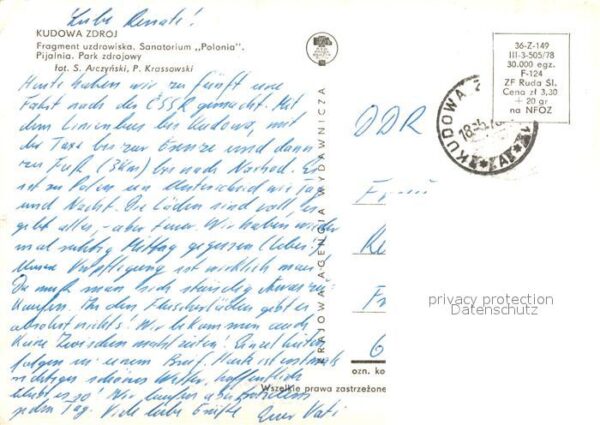 Liebe Renate!
KUDOWA ZDROJ
Fragment uzdrowiska. Sanatorium „Polonia”.
Pijalnia. Park zdrojowy
fot. S. Arczyński, P. Krassowski
Heute haben wir zu fünft eine
Fahrt nach der ČSSR gemacht. Mit
dem Linienbus bis Kudowa, mit
der Taxe bis zur Grenze und dann
zu Fuß (3km) bis nach Nachod. Es
ist zu Polen ein Unterschied wie Tag
und Nacht. Die Läden sind voll, es
gibt alles, aber teuer. Wir haben wieder
mal richtig Mittag gegessen
Unsere Verpflegung ist wirklich mau.
Da muß man sich ständig etwas zu-
kaufen. In den Fleischerläden gibt es
absolut nichts! Wir bekommen auch
keine Zwischenmahlzeiten!
folgen in einem Brief. Heute ist erstmals
richtiges schönes Wetter, hoffentlich
bleibt es so! Wir laufen
jeden Tag. Viele liebe Grüße Euer Vati
KRAJOWA AGENCJA WYDAWNICZA
36-Z-149
III-3-505/78
30.000 egz.
F-124
ZF Ruda Śl.
Cena zł 3,30
+ 20 gr
na NFOZ
KUDOWA Z
DDR
privacy protection
Datenschutz
ozn. ko
Wszelkie prawa zastrzeżone